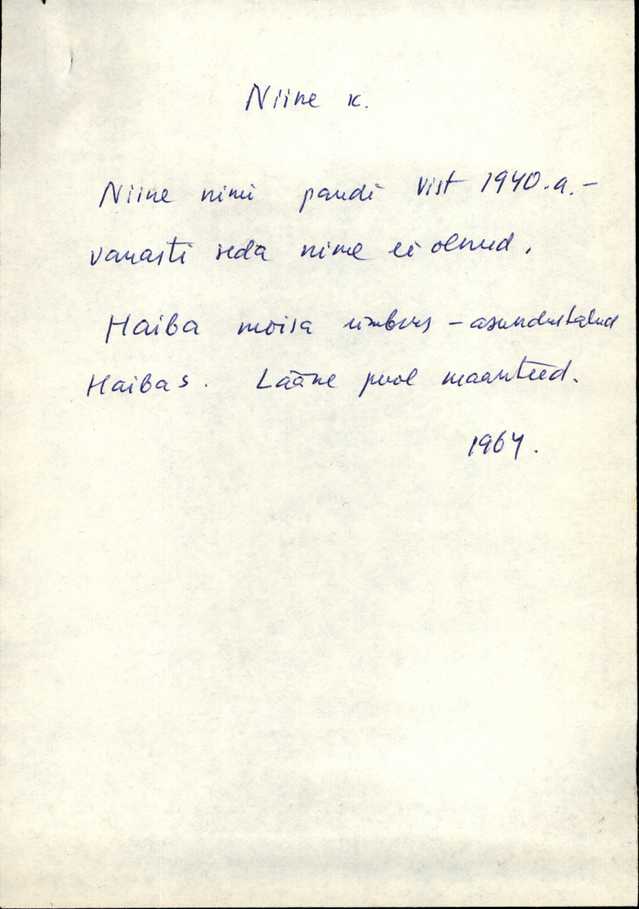 Niine k.
Niine nimi pandi vist 1940.a.-
vanasti seda nime ei olnud.
Haiba moisa ümbrus - asundustalud
Haibas. Lääne pool maanteed.
1964.